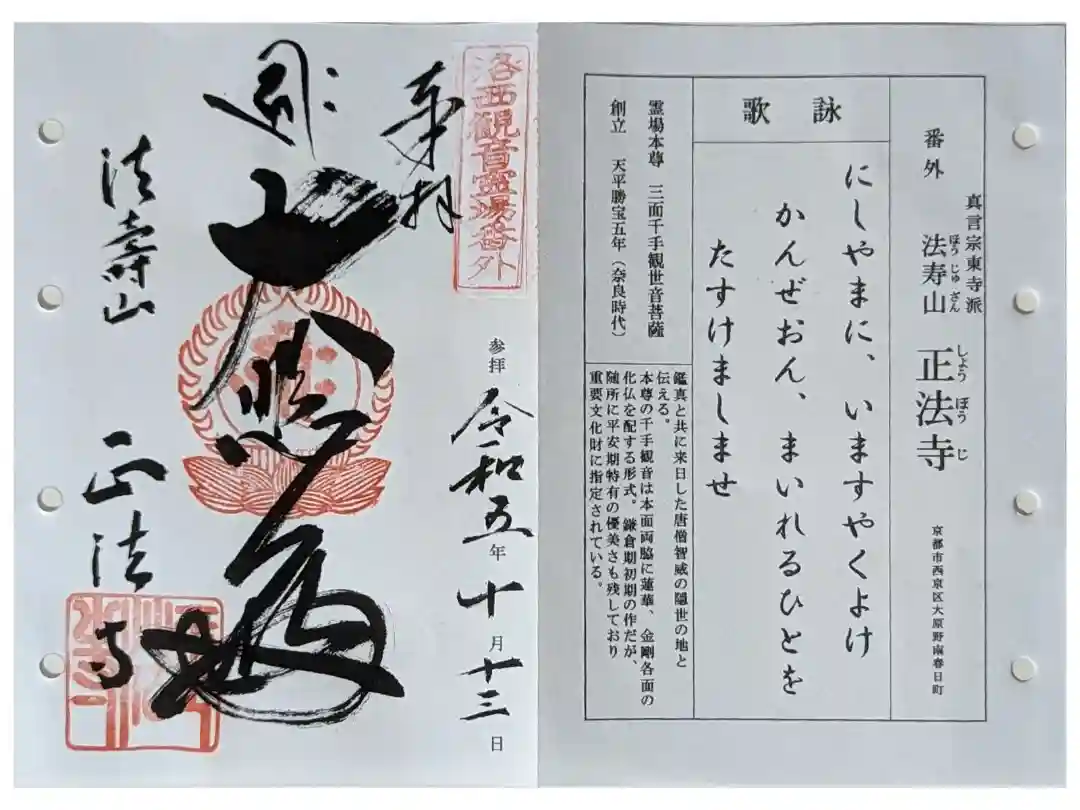 真言宗東寺派
番外
法寿山 正法寺
ほうじゅざん しょうぼうじ
京都市西京区大原野南春日町
詠歌
にしやまに、いますやくよけ
かんぜおん、まいれるひとを
たすけましませ
霊場本尊 三面千手観世音菩薩
創立 天平勝宝五年（奈良時代）
鑑真と共に来日した唐僧智威の隠世の地と
伝える。
本尊の千手観音は本面両脇に蓮華、金剛各面の
化仏を配する形式。鎌倉期初期の作だが、
随所に平安期特有の優美さも残しており
重要文化財に指定されている。
洛西観音靈場番外
参拝 令和五年十月十三日
奉拝
法壽山 正法寺